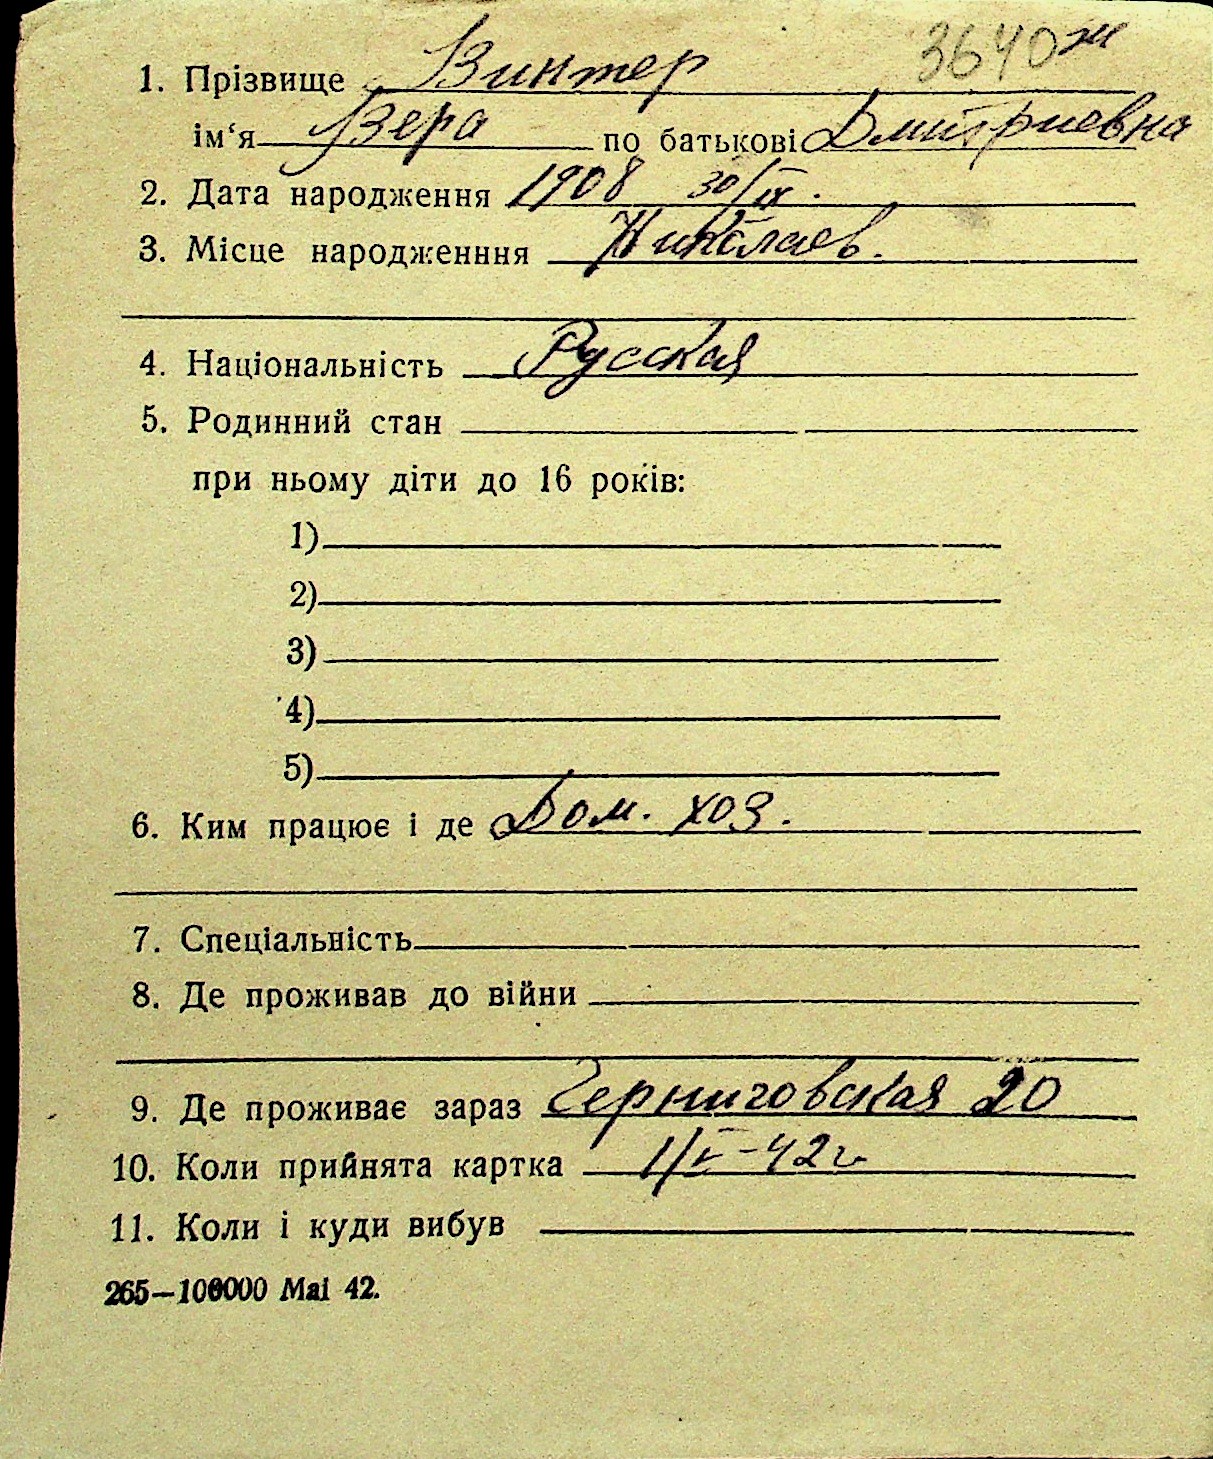 3640 ж
1. Прізвище Винтер
ім‘я Вера по батькові Дмитриевна
2. Дата народження 1908 30/IX.
3. Місце народженння Николаев.
4. Національність Русская
5. Родинний стан
при ньому діти до 16 років:
1)
2)
3)
4)
5)
6. Ким працює і де Дом. хоз.
7. Спеціальність
8. Де проживав до війни
9. Де проживає зараз Черниговская 20
10. Коли прийнята картка 1/V-42г
11. Коли і куди вибув
265—100000 Mai 42.